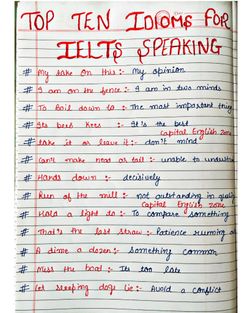 TOP TEN IDIOMS FOR
IELTS SPEAKING
# My take on this :- My opinion
# I am on the fence :- I am in two minds
# To boil down to :- The most important thing
# Its bees knees :- It's the best
Capital English Zone
# take it or leave it :- don't mind
# Can't make head or tail :- unable to understand
# Hands down :- decisively
# Run of the mill :- not outstanding in quality
Capital English Zone
# Hold a light to :- To compare something
# That's the last straw :- Patience running
# A dime a dozen :- Something common
# Miss the boat :- Its too late
# Let sleeping dogs lie :- Avoid a conflict